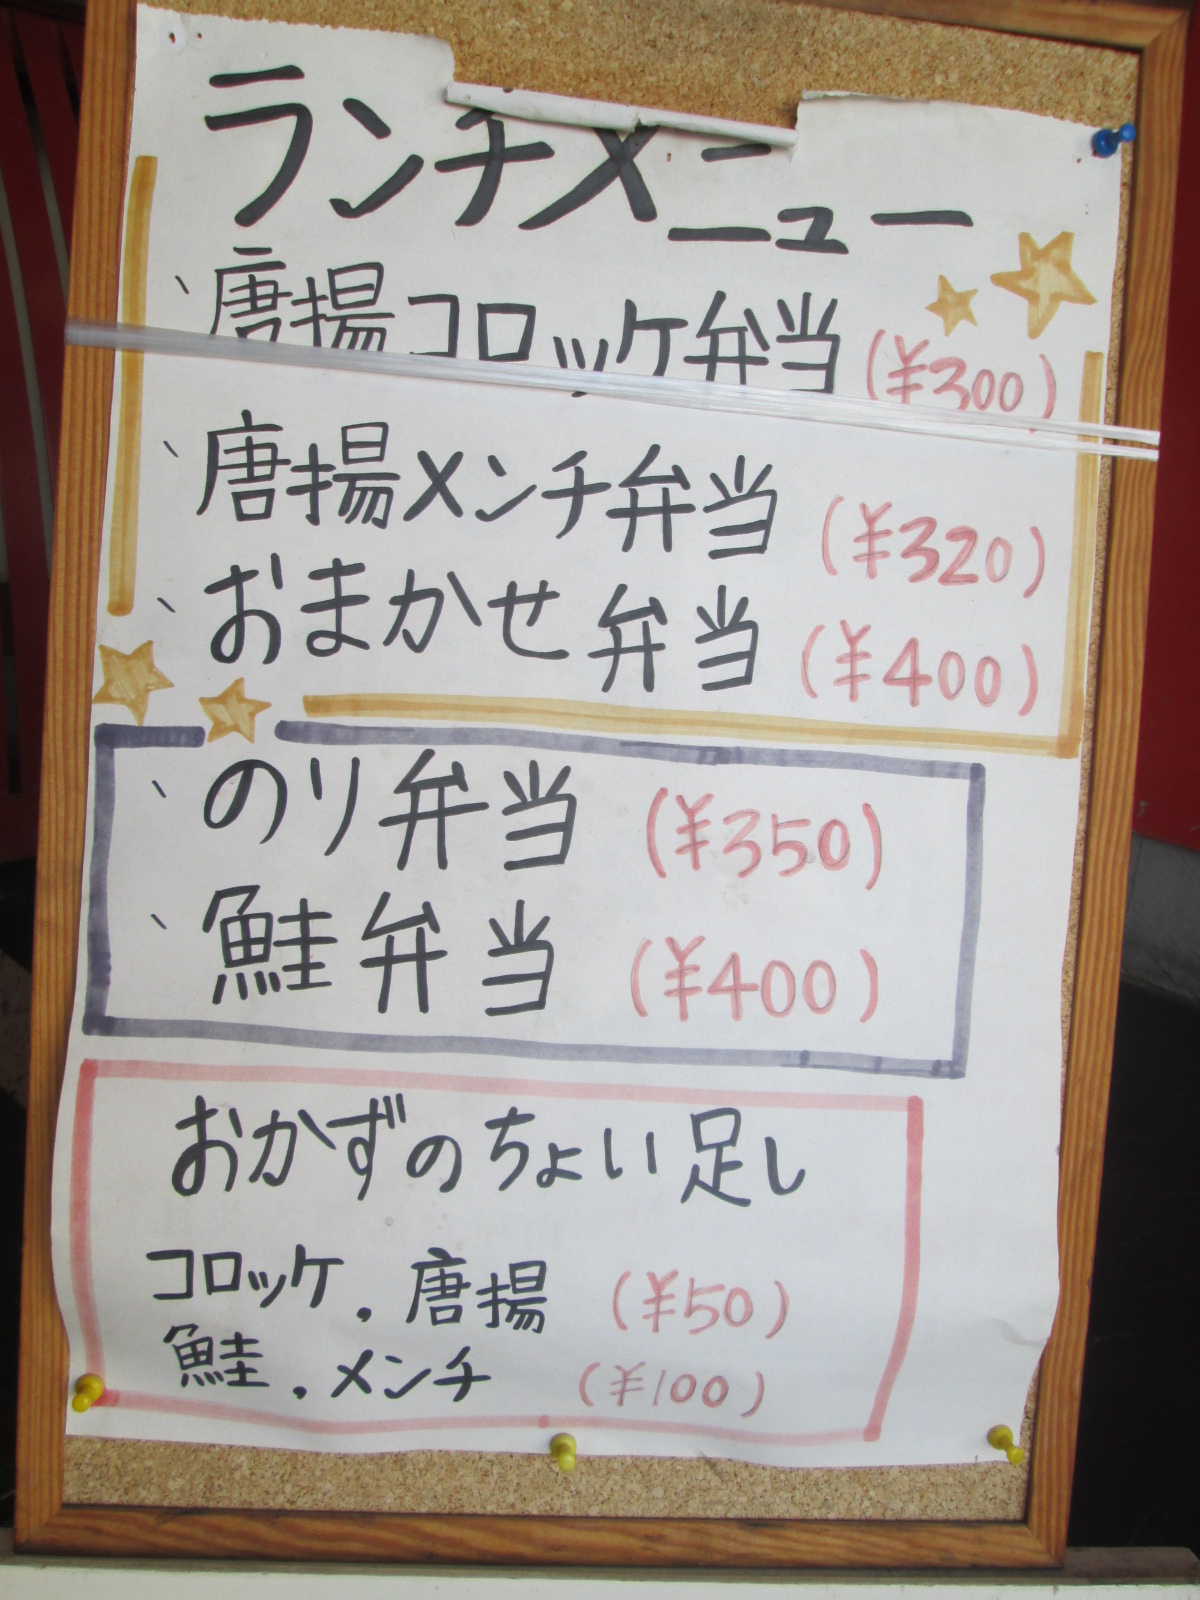 ランチメニュー
、唐揚コロッケ弁当 (¥300)
、唐揚メンチ弁当 (¥320)
、おまかせ弁当 (¥400)
、のり弁当 (¥350)
、鮭弁当 (¥400)
おかずのちょい足し
コロッケ.唐揚 (¥50)
鮭.メンチ (¥100)